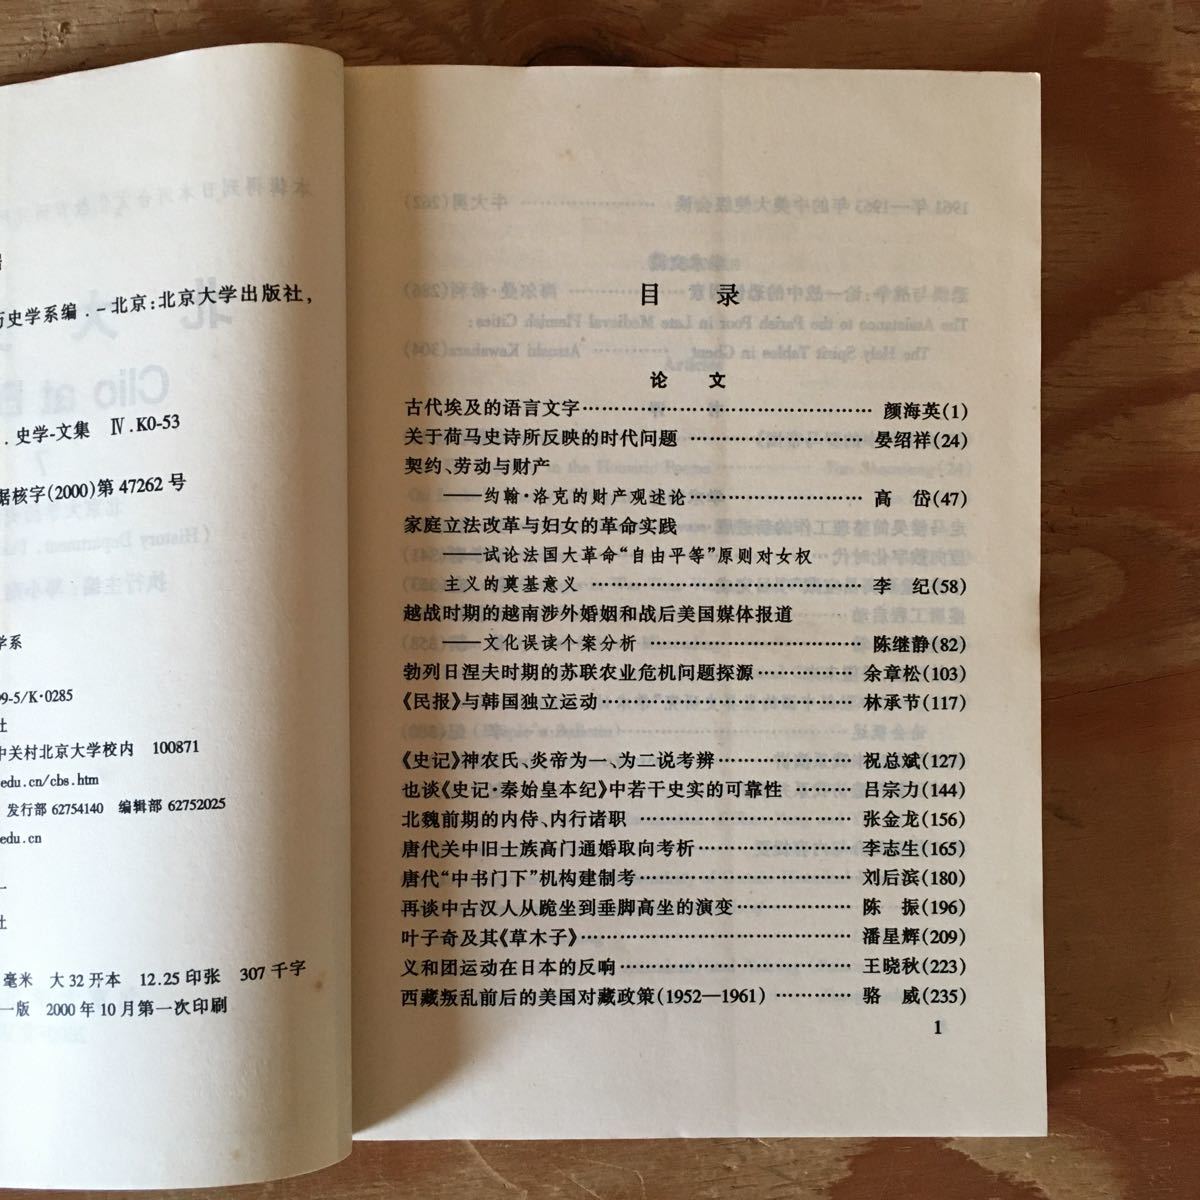 历史学系编.－北京:北京大学出版社,
.史学-文集 Ⅳ.K0-53
据核字(2000)第47262号
学系
99-5/K·0285
社
中关村北京大学校内 100871
edu.cn/cbs.htm
发行部 62754140 编辑部 62752025
edu.cn
社
毫米 大32开本 12.25印张 307千字
一版 2000年10月第一次印刷
目 录
论 文
古代埃及的语言文字…………………………………… 颜海英(1)
关于荷马史诗所反映的时代问题 ……………………… 晏绍祥(24)
契约、劳动与财产
——约翰·洛克的财产观述论……………………… 高 岱(47)
家庭立法改革与妇女的革命实践
——试论法国大革命“自由平等”原则对女权
主义的奠基意义 …………………………………… 李 纪(58)
越战时期的越南涉外婚姻和战后美国媒体报道
——文化误读个案分析 …………………………… 陈继静(82)
勃列日涅夫时期的苏联农业危机问题探源…………… 余章松(103)
《民报》与韩国独立运动………………………………… 林承节(117)
《史记》神农氏、炎帝为一、为二说考辨………………… 祝总斌(127)
也谈《史记·秦始皇本纪》中若干史实的可靠性 ……… 吕宗力(144)
北魏前期的内侍、内行诸职 …………………………… 张金龙(156)
唐代关中旧士族高门通婚取向考析…………………… 李志生(165)
唐代“中书门下”机构建制考…………………………… 刘后滨(180)
再谈中古汉人从跪坐到垂脚高坐的演变……………… 陈 振(196)
叶子奇及其《草木子》…………………………………… 潘星辉(209)
义和团运动在日本的反响……………………………… 王晓秋(223)
西藏叛乱前后的美国对藏政策(1952—1961) ………… 骆 威(235)
1